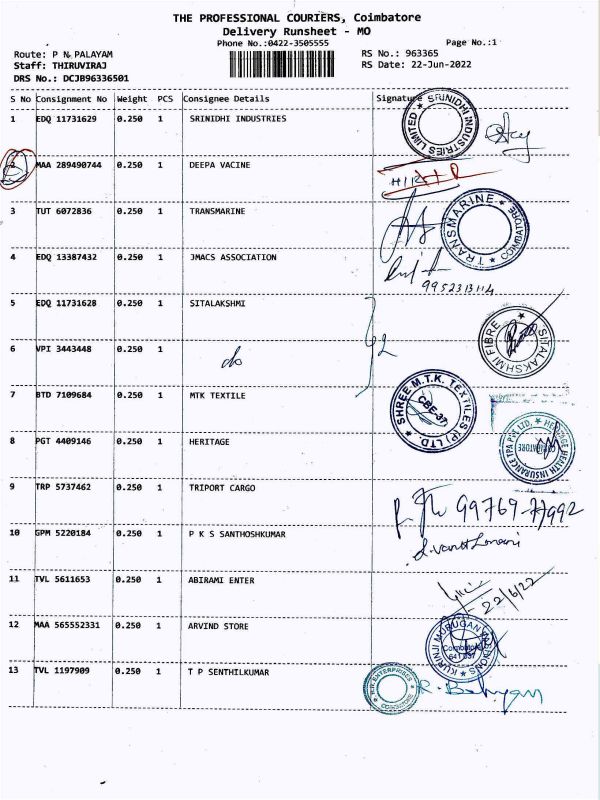 THE PROFESSIONAL COURIERS, Coimbatore
Delivery Runsheet - MO
Phone No.:0422-3505555
Page No.:1
Route: P N PALAYAM
RS No.: 963365
Staff: THIRUVIRAJ
RS Date: 22-Jun-2022
DRS No.: DCJB96336501
S No Consignment No Weight PCS Consignee Details Signature
1 EDQ 11731629 0.250 1 SRINIDHI INDUSTRIES
SRINIDHI INDUSTRIES LIMITED
2 MAA 289490744 0.250 1 DEEPA VACINE
3 TUT 6072836 0.250 1 TRANSMARINE
TRANSMARINE COIMBATORE
4 EDQ 13387432 0.250 1 JMACS ASSOCIATION
9952313114
5 EDQ 11731628 0.250 1 SITALAKSHMI
SITALAKSHMI FIBRE
6 VPI 3443448 0.250 1 do
7 BTD 7109684 0.250 1 MTK TEXTILE
SHREE M.T.K. TEXTILES (P) LTD.
CBE-37
8 PGT 4409146 0.250 1 HERITAGE
HERITAGE HEALTH INSURANCE TPA PVT LTD.
COIMBATORE
9 TRP 5737462 0.250 1 TRIPORT CARGO
10 GPM 5220184 0.250 1 P K S SANTHOSHKUMAR
11 TVL 5611653 0.250 1 ABIRAMI ENTER
22/6/22
12 MAA 565552331 0.250 1 ARVIND STORE
Coimbatore
641 037
13 TVL 1197909 0.250 1 T P SENTHILKUMAR